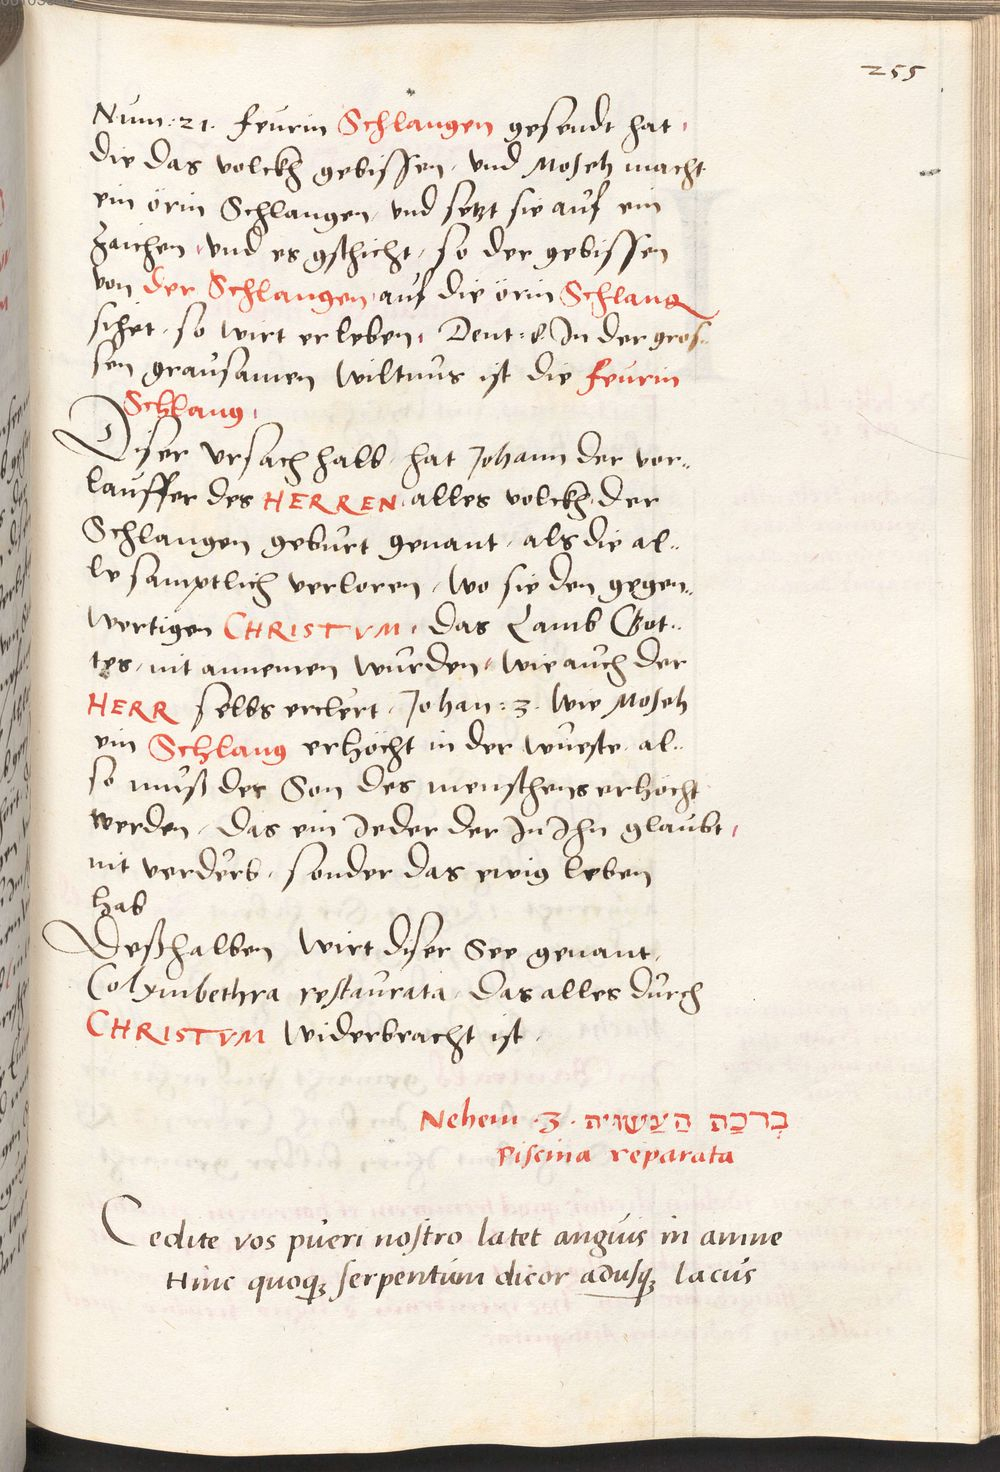 255
Num: 21. feurin Schlangen gesendt hat,
die das volckh gebissen, vnd Moseh macht
ein örin Schlangen, vnd setzt sie auf ein
Zaichen, vnd es gschicht, so der gebissen
von der Schlangen, auf die örin Schlang
sihet, so wirt er leben, Deut: 8 In der gros„
sen grausamen Wiltnus ist die feurin
Schlang,
Diser vrsach halb, hat Johann der vor„
lauffer des HERREN, alles volckh, der
Schlangen geburt genant, als die al„
le samptlich verloren, Wo sie den gegen„
wertigen CHRISTVM, das Lamb Got„
tes, nit annemen wurden, wie auch der
HERR selbs erclert, Johan: 3. Wie Moseh
ein Schlang erhöcht in der Wueste, al„
so muß der Son des menschens erhöcht
werden, das ein Jeder der Jn Jhn glaubt,
nit verderb, sonder das ewig leben
hab
Deßhalben wirt diser See genant,
Colymbethra restaurata, das alles durch
CHRISTVM widerbracht ist,
Nehem .3. בְרכַה הַעֲשׂויה
Piscina reparata
Cedite vos pueri nostro latet anguis in amne
Hinc quoqꝫ serpentum dicor adusqꝫ lacus